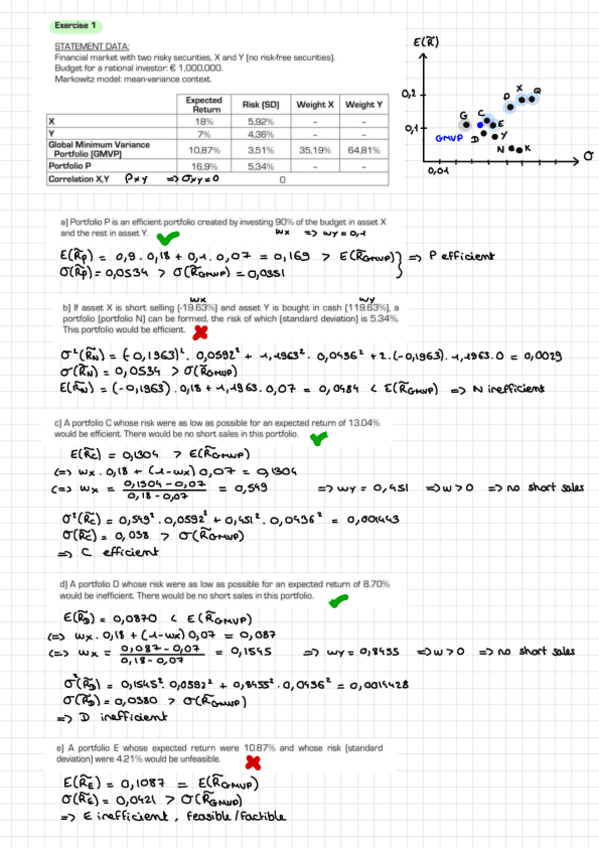 Exercise 1
STATEMENT DATA:
Financial market with two risky securities, X and Y (no risk-free securities).
Budget for a rational investor: € 1,000,000.
Markowitz model: mean-variance context.
Expected Return Risk (SD) Weight X Weight Y
X 18% 5,92% – –
Y 7% 4,36% – –
Global Minimum Variance Portfolio (GMVP) 10,87% 3,51% 35,19% 64,81%
Portfolio P 16,9% 5,34% – –
Correlation X,Y ρxy => σxy=0 0
E(R̃)
0,2
0,1
0,01
σ
P X Q
G C E
GMVP D Y
N K
a) Portfolio P is an efficient portfolio created by investing 90% of the budget in asset X
and the rest in asset Y. wx => wy=0,1
E(R̃p) = 0,9 . 0,18 + 0,1 . 0,07 = 0,169 > E(R̃GMVP) } => P efficient
σ(R̃p) = 0,0534 > σ(R̃GMVP) = 0,0351
wx wy
b) If asset X is short selling (-19.63%) and asset Y is bought in cash (119.63%), a
portfolio (portfolio N) can be formed, the risk of which (standard deviation) is 5.34%.
This portfolio would be efficient.
σ²(R̃N) = (-0,1963)² . 0,0592² + 1,1963² . 0,0436² + 2 . (-0,1963) . 1,1963 . 0 = 0,0029
σ(R̃N) = 0,0534 > σ(R̃GMVP)
E(R̃N) = (-0,1963) . 0,18 + 1,1963 . 0,07 = 0,0484 < E(R̃GMVP) => N inefficient
c) A portfolio C whose risk were as low as possible for an expected return of 13.04%
would be efficient. There would be no short sales in this portfolio.
E(R̃C) = 0,1304 > E(R̃GMVP)
<=> wx . 0,18 + (1-wx) 0,07 = 0,1304
<=> wx = (0,1304 - 0,07)/(0,18 - 0,07) = 0,549 => wy = 0,451 => w > 0 => no short sales
σ²(R̃C) = 0,549² . 0,0592² + 0,451² . 0,0436² = 0,001443
σ(R̃C) = 0,038 > σ(R̃GMVP)
=> C efficient
d) A portfolio D whose risk were as low as possible for an expected return of 8.70%
would be inefficient. There would be no short sales in this portfolio.
E(R̃D) = 0,0870 < E(R̃GMVP)
<=> wx . 0,18 + (1-wx) 0,07 = 0,087
<=> wx = (0,087 - 0,07)/(0,18 - 0,07) = 0,1545 => wy = 0,8455 => w > 0 => no short sales
σ²(R̃D) = 0,1545² . 0,0592² + 0,8455² . 0,0436² = 0,0014428
σ(R̃D) = 0,0380 > σ(R̃GMVP)
=> D inefficient
e) A portfolio E whose expected return were 10.87% and whose risk (standard
deviation) were 4.21% would be unfeasible.
E(R̃E) = 0,1087 = E(R̃GMVP)
σ(R̃E) = 0,0421 > σ(R̃GMVP)
=> E inefficient, feasible/factible